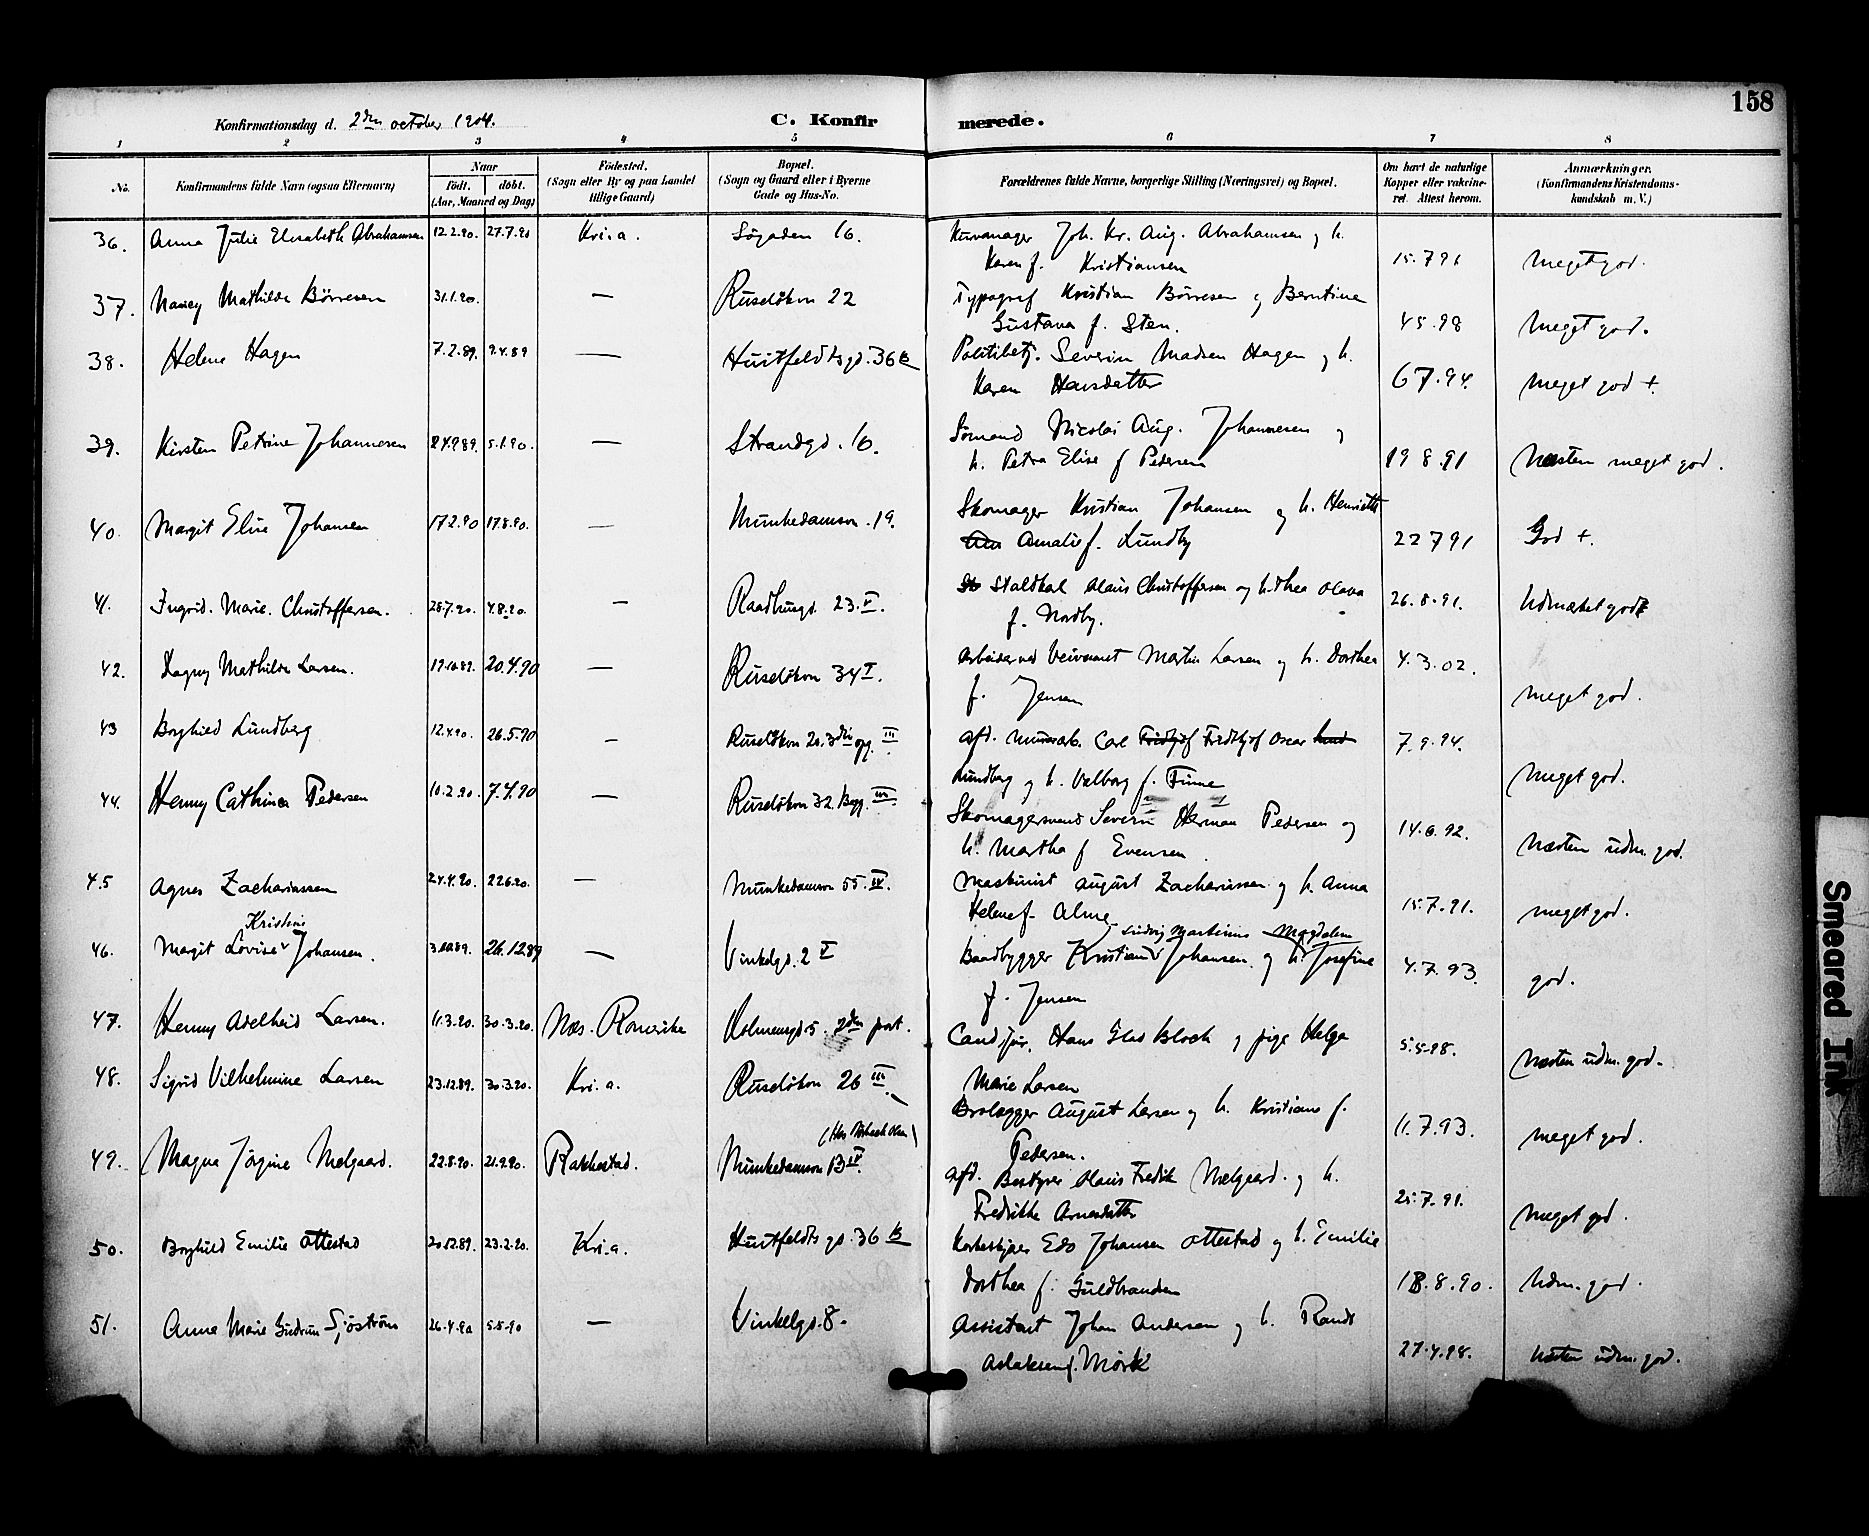 158
Konfirmationsdag d. 2den october 1904. C. Konfirmerede.
1 2 3 4 5 6 7 8
No. Konfirmandens fulde Navn (ogsaa Efternavn) Naar født. døbt. (Aar, Maaned og Dag) Fødested. (Sogn eller By og paa Landet tillige Gaard) Bopæl. (Sogn og Gaard eller i Byerne Gade og Hus-No. Forældrenes fulde Navne, borgerlige Stilling (Næringsvei) og Bopæl. Om havt de naturlige Kopper eller vaccineret. Attest herom. Anmærkninger. (Konfirmandens Kristendomskundskab m. V.)
36. Anna Julie Elisabeth Abrahamsen 12.2.90. 27.7.90 Kri.a. Søgaden 16. Kurvmager Joh. Kr. Aug. Abrahamsen og h.
Karen f. Kristiansen 15.7 91 Meget god.
37. Nancy Mathilde Børresen 31.1.90. — Ruseløkvn 22 Typograf Kristian Børresen og Berntine
Gustava f. Sten. 4 5.98 Meget god.
38. Helene Hagen 7.2.89. 9.4.89 — Huitfeldtsgd. 36 B Politibetj. Severin Madsen Hagen og h.
Karen Hansdatter 6 7.94. Meget god +.
39. Kirsten Petrine Johannesen 24.9.89. 5.1.90. — Strandgd. 16. Sømand Nicolai Aug. Johannesen og
h. Petra Elise f Pedersen 19 8.91 Næsten meget god.
40. Margit Elise Johansen 17.2.90 17.8.90. — Munkedamsvn. 19. Skomager Kristian Johansen og h. Henriette
Amalie f. Lundby 22 7 91 God +.
41. Ingrid. Marie. Christoffersen. 28.7.90. 4.8.90. — Raadhusgd. 23.V. Staldkal Olaus Christoffersen og h. Thea Olava
f. Nordby. 26.8.91. Udmærket god
42. Dagny Mathilde Larsen. 19.10.89. 20.4.90 — Ruseløkvn 34 I. Arbeider ved Veivæsnet Martin Larsen og h. Dorthea
f. Jensen 4.3.02. Meget god.
43 Borghild Lundberg 12.4.90. 26.5.90 — Ruseløkvn 20. 3die opg. III afd. Murarb. Carl Fridtjof Fridthjof Oscar Lund
Lundberg og h. Valborg f. Finne 7.9.94. Meget god.
44. Henny Cathinca Pedersen 10.2.90. 7.4.90 — Ruseløkvn 32. Bagg. III. Skomagersvend Severin Herman Pedersen og
h. Martha f Evensen. 14.6.92. Næsten udm. god.
45 Agnes Zachariassen 24.4.90. 22.6.90. — Munkedamsvn 55. IV. Maskinist August Zachariassen og h. Anna
Helene f. Alme 15.7.91. Meget god.
Kristine
Ludvig Martinius Magdalene
46. Margit Lovise Johansen. 3.10.89. 26.12.89 — Vinkelgd. 2 V Baadbygger Kristian Johansen. og h. Josefine
f. Jensen 4.7.93. god.
47. Henny Adelheid Larsen. 11.3.90. 30.3.90. Næs. Romerike Holmensgd 5. 2den port. Cand jur. Hans Glad Bloch og pige Helga
Marie Larsen 5.5.98. Næsten udm. god.
48. Sigrid Vilhelmine Larsen 23.12.89. 30.3.90. Kri.a. Ruseløkvn 26 III. Brolægger August Larsen og h. Kristiane f.
Pedersen. 11.7.93. Meget god.
49. Magna Jørgine Melgaard. 22.8.90. 21.9.90. Rakkestad. Munkedamsvn 13 II. afd. Bestyrer Olaus Fredrik Melgaard. og h.
Fredrikke Arnesdatter 25.7.91. Meget god.
50. Borghild Emilie Ottestad 20.12.89. 23.2.90. Kri.a. Huitfeldts gd. 36 B Korkeskjær Edv Johansen Ottestad og h. Emilie
Dorthea f. Guldbrandsen 18.8.90. Udm. god.
51. Anna Marie Gudrun Sjöström 26.4.90 5.5.90 — Vinkelgd. 8. Assistent Johan Andersen og h. Randi
Aslaksen f. Mørk 27.4.98. Næsten udm. god.
Smeared Ink